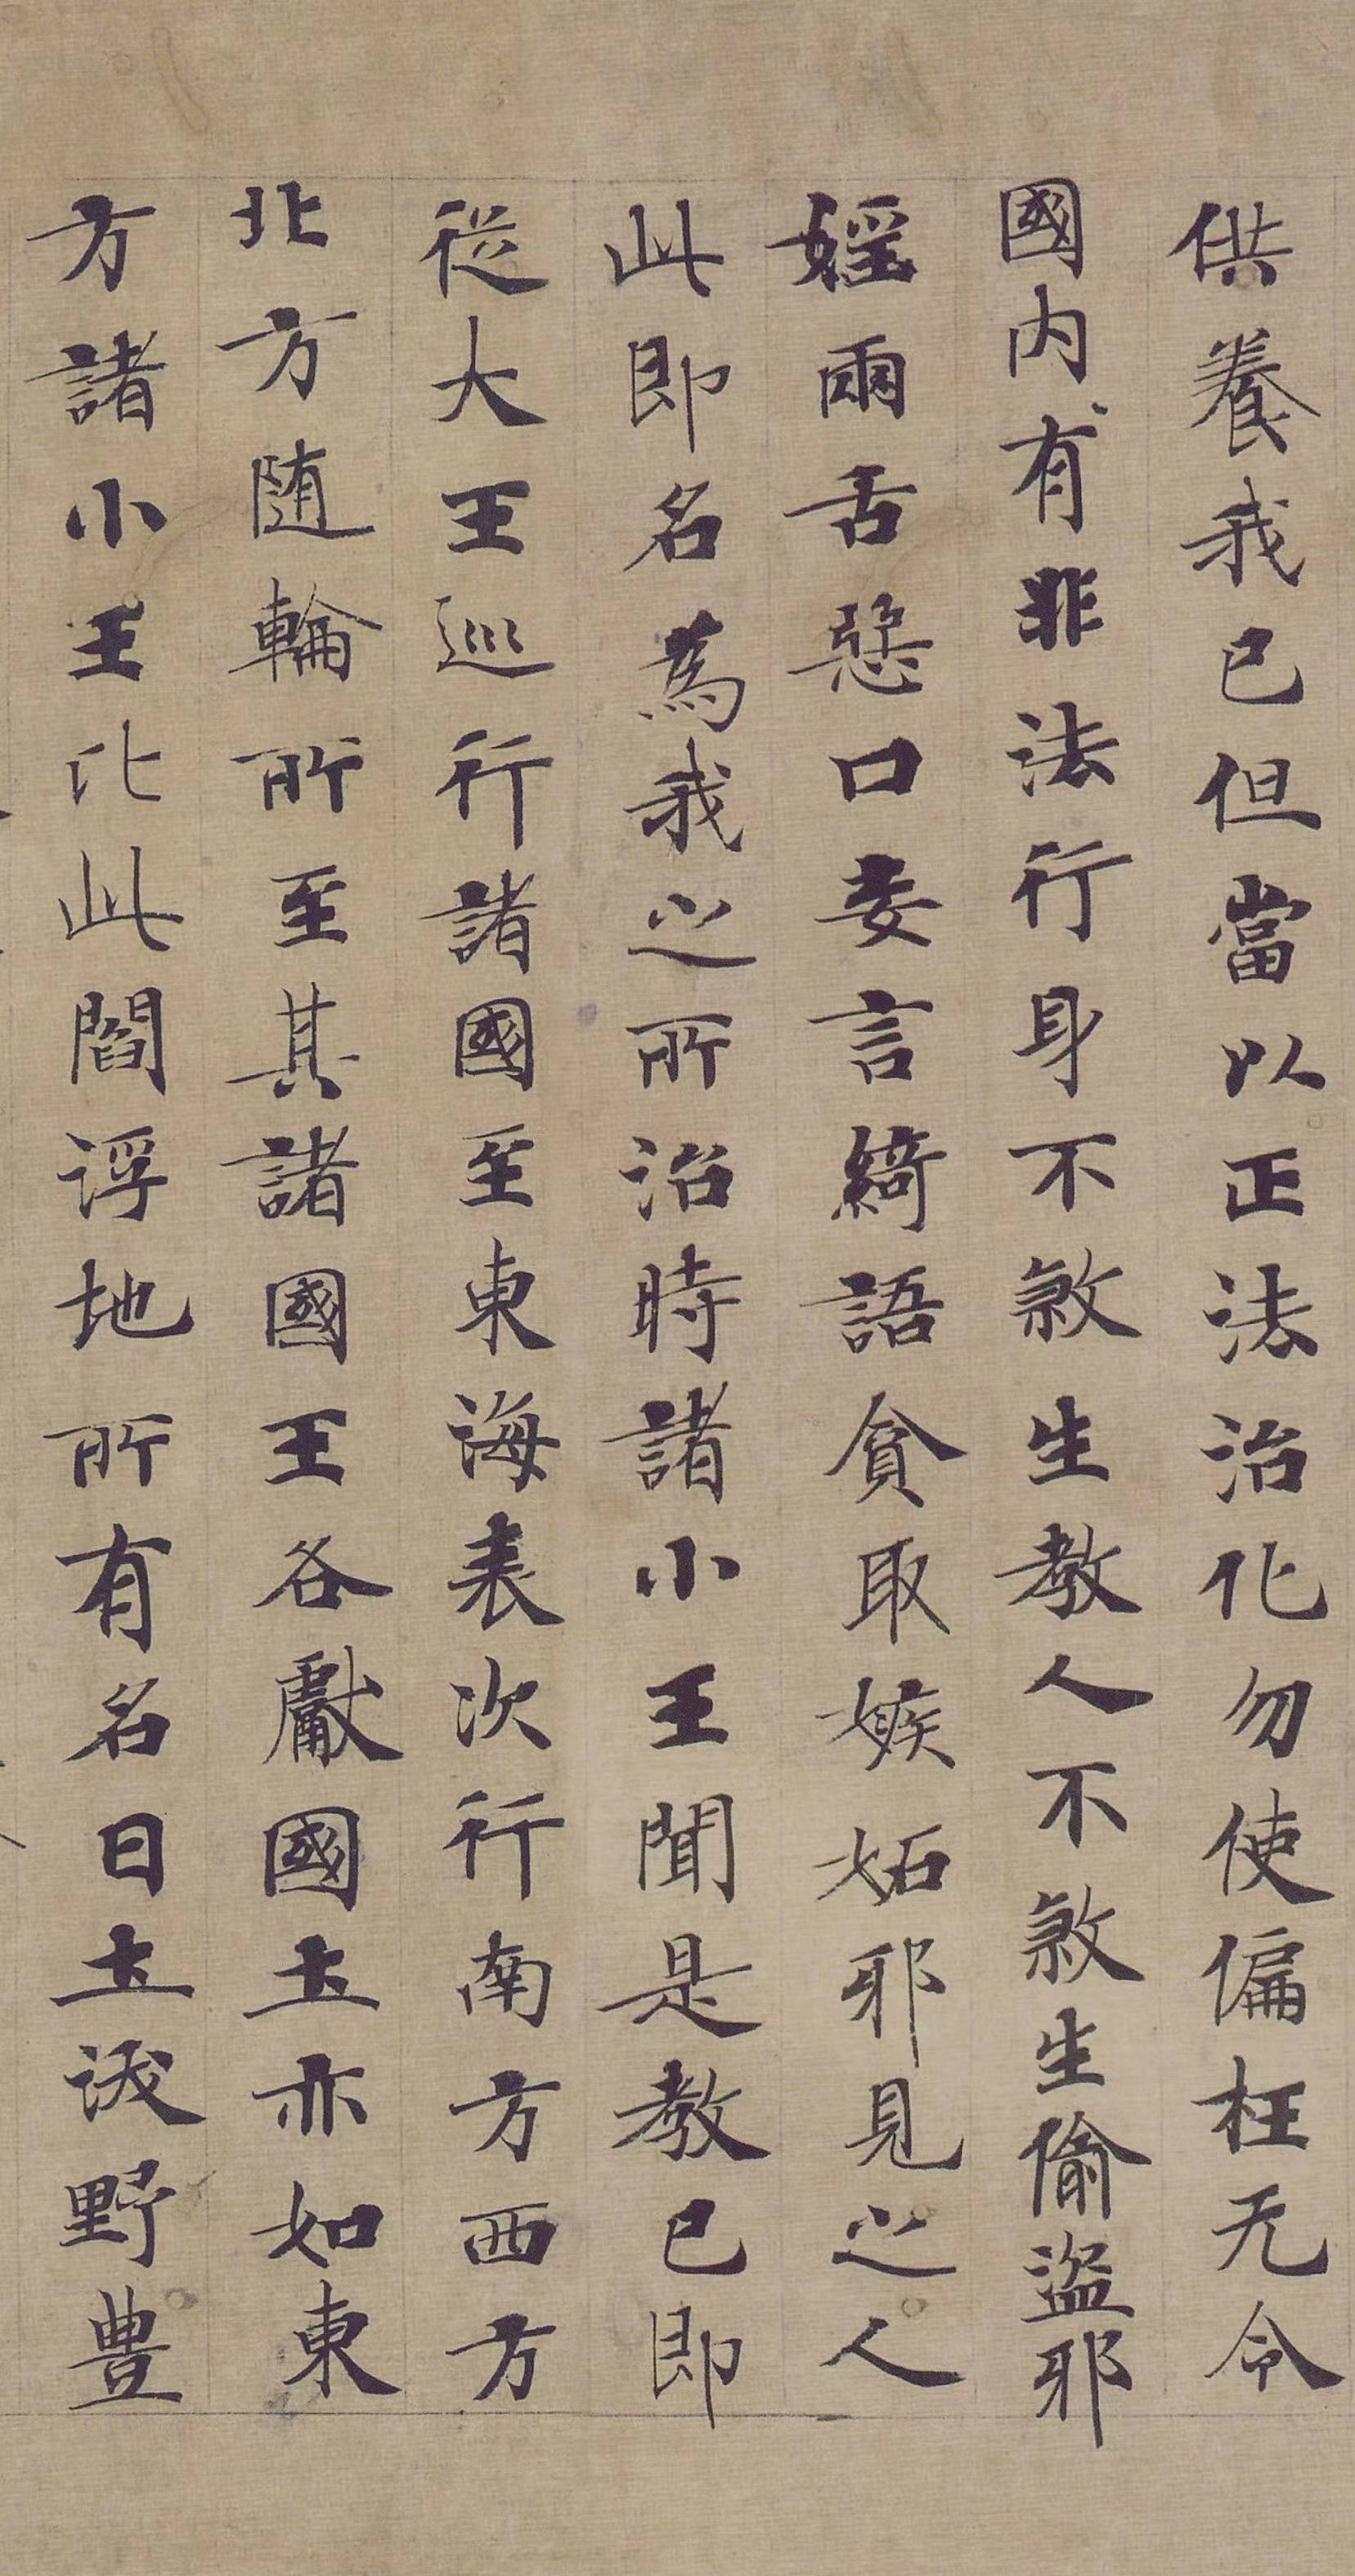 供養我已但當以正法治化勿使偏枉无令
國内有非法行身不煞生教人不煞生偷盜耶
婬兩舌惡口妄言綺語貪取嫉妬耶見之人
此即名為我之所治時諸小王聞是教已即
從大王巡行諸國至東海表次行南方西方
北方随輪所至其諸國王各獻國土亦如東
方諸小王比此閻浮地所有名曰土沃野豊